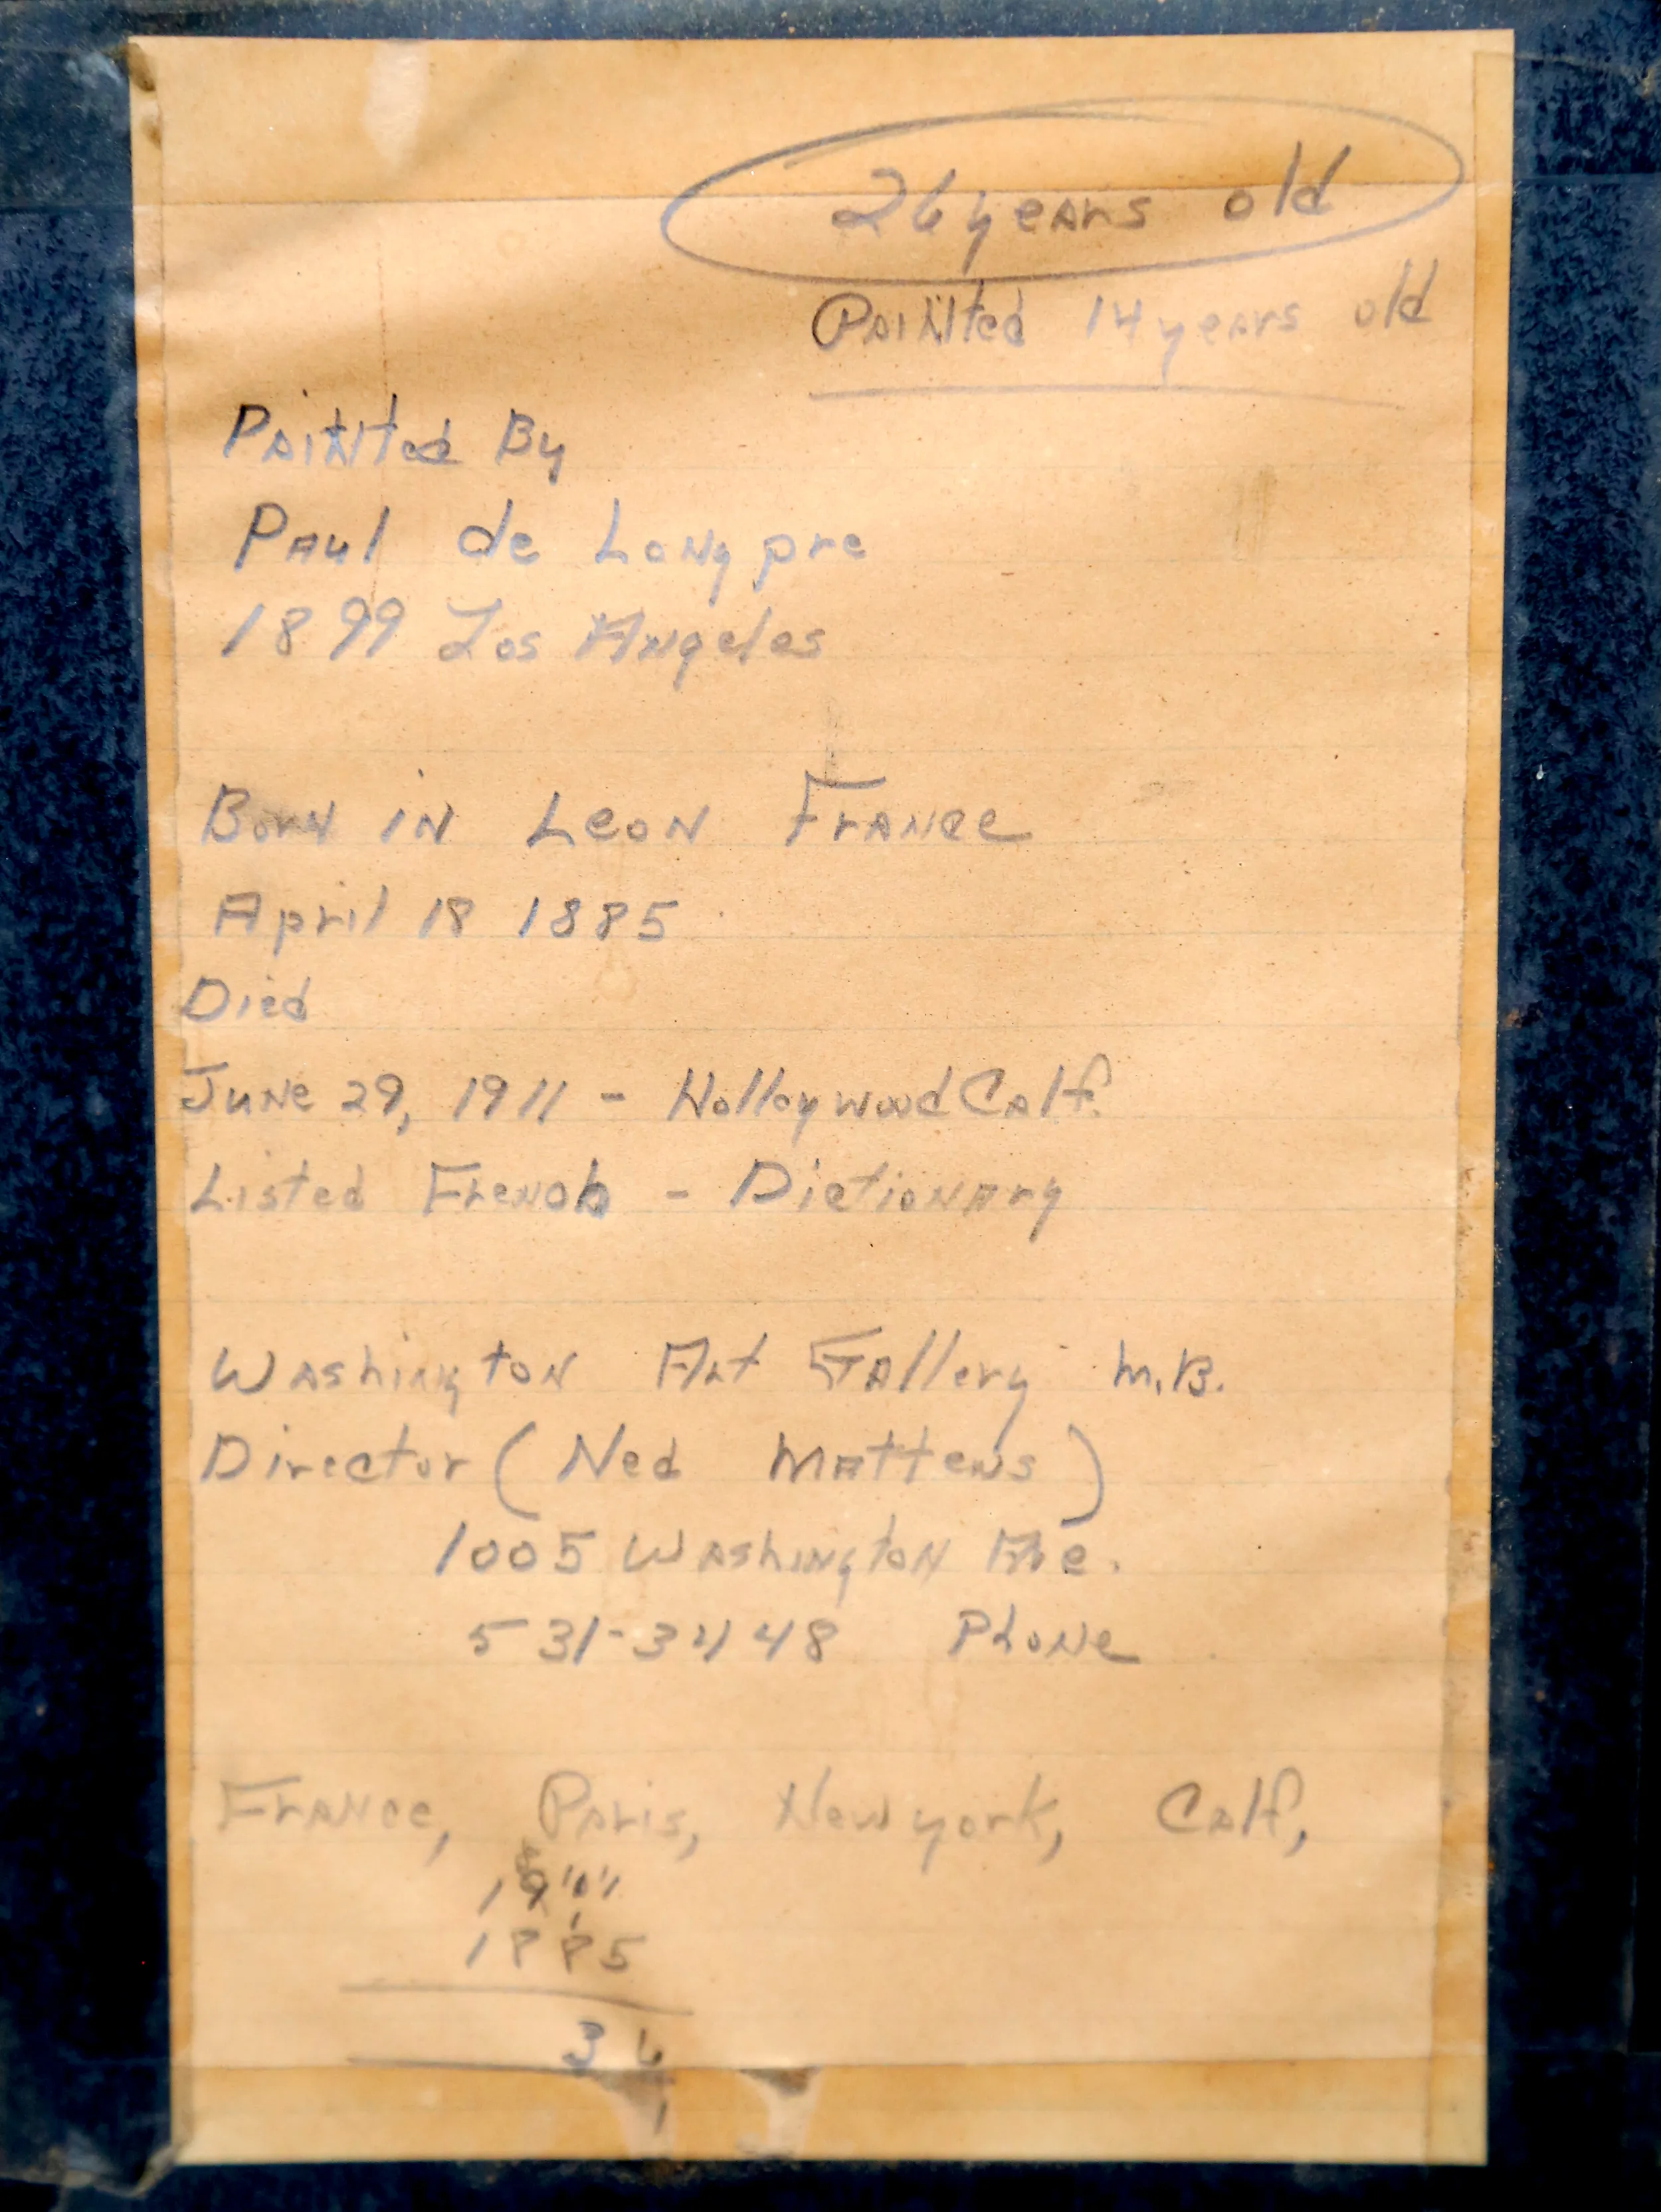 26 years old
Painted 14 years old
Painted By
Paul de Longpre
1899 Los Angeles
Born in Leon France
April 18 1885
Died
June 29, 1911 - Holloywood Calf.
Listed French - Dictionary
Washington Art Gallery M.B.
Director (Ned Mattens)
1005 Washington Ave.
531-3448 Phone
France, Paris, New york, Calf,
1885